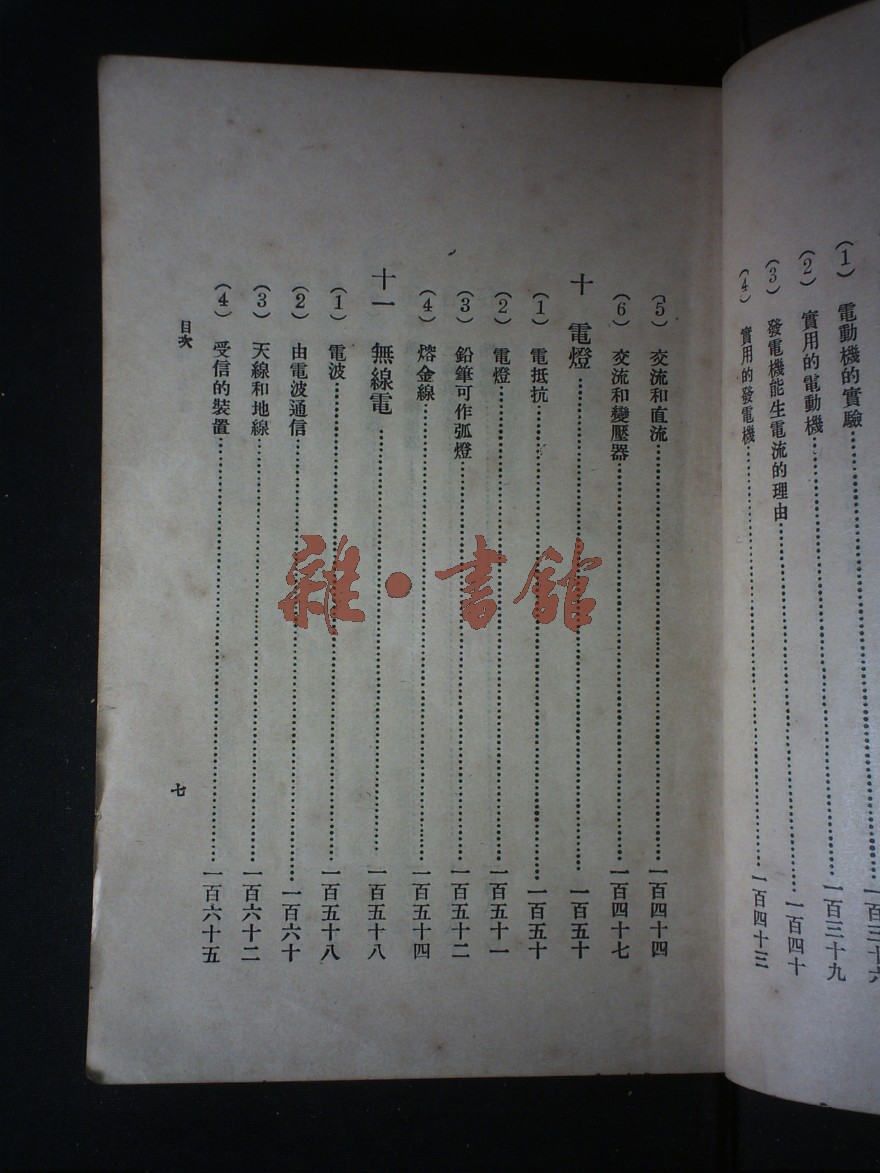 (1) 電動機的實驗……一百三十六
(2) 實用的電動機……一百三十九
(3) 發電機能生電流的理由……一百四十
(4) 實用的發電機……一百四十三
(5) 交流和直流……一百四十四
(6) 交流和變壓器……一百四十七
十 電燈……一百五十
(1) 電抵抗……一百五十
(2) 電燈……一百五十一
(3) 鉛筆可作弧燈……一百五十二
(4) 熔金線……一百五十四
十一 無線電……一百五十八
(1) 電波……一百五十八
(2) 由電波通信……一百六十
(3) 天線和地線……一百六十二
(4) 受信的裝置……一百六十五
目次
七
雜·書館